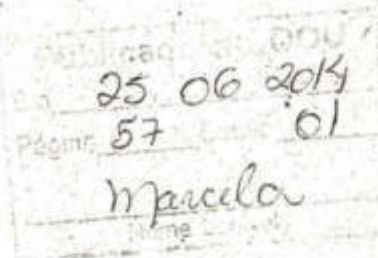 Publicado no DOU
25 06 2014
Página 57 01
Marcela
Nome